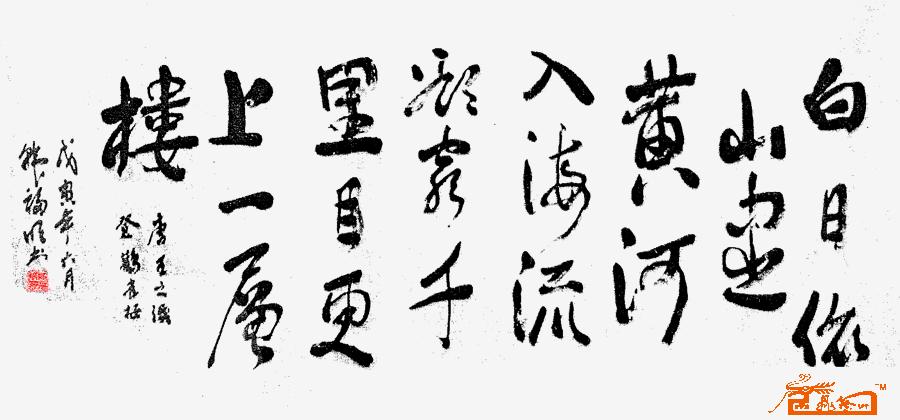 白日依
山尽
黄河
入海流
欲穷千
里目更
上一层
楼
唐王之涣
登鹳雀楼
戊寅年六月